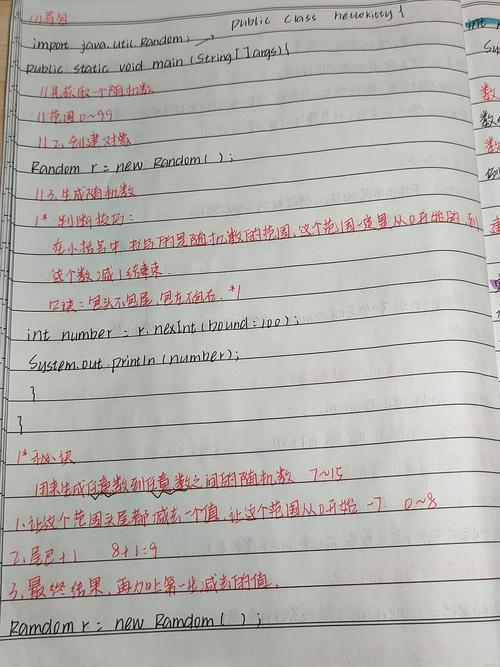 //1.导包
public class hellokitty{
import java.util.Random;
public static void main (String[]args){
//先获取一个随机数
//范围0~99
//2.创建对象
Random r = new Random( );
//3.生成随机数
/* 判断技巧:
在小括号中,书写的是随机数的范围,这个范围一定是从0开始的,到
这个数减1结束.
口诀:包头不包尾,包左不包右. */
int number = r.nexInt(bound:100);
System.out.println (number);
}
}
/*秘诀
用来生成任意数到任意数之间的随机数 7~15
1.让这个范围头尾都减去一个值,让这个范围从0开始 -7 0~8
2.尾巴+1 8+1=9
3.最终结果,再加上第一步减去的值.
Ramdom r = new Ramdom ( );
int n
Sy
数
数
数